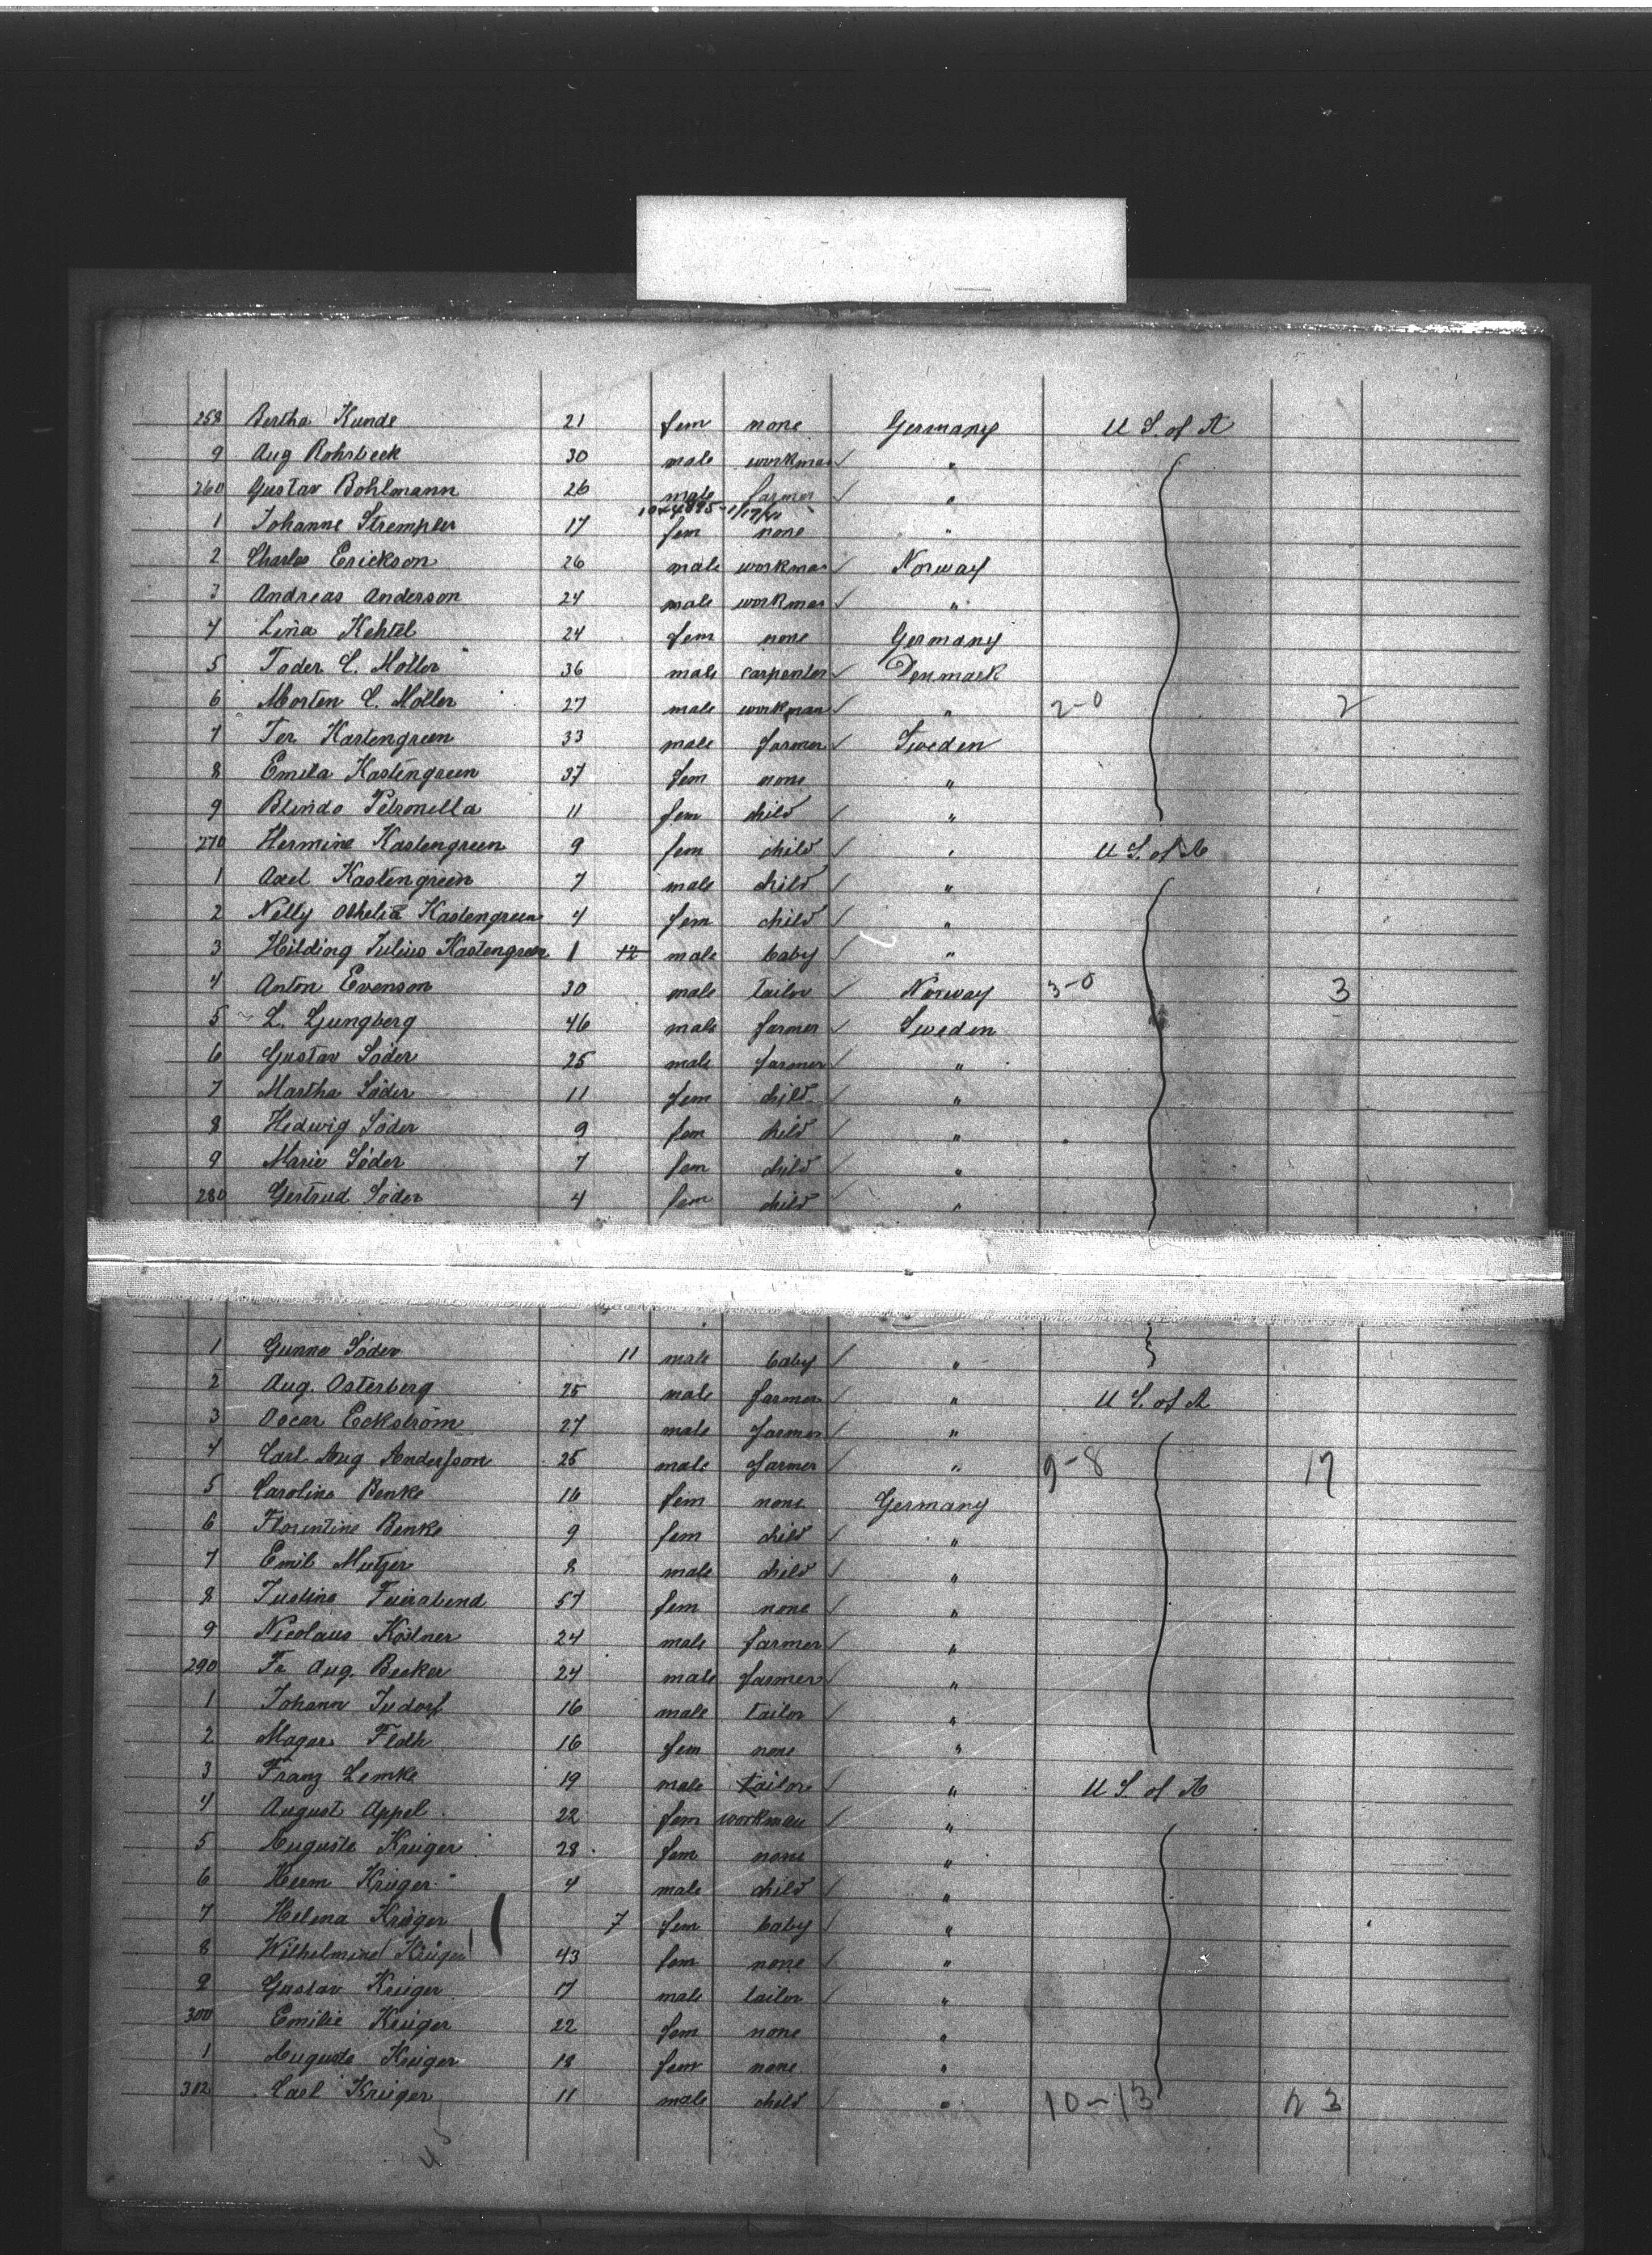 258 Bertha Kunde 21 fem none Germany U S. of A
9 Aug Rohrbeck 30 male workman ✓ "
260 Gustav Bohlmann 26 male farmer ✓ "
1 Johanne Strempler 17 fem none "
2 Charles Erickson 26 male workman ✓ Norway
3 Andreas Anderson 24 male workman ✓ "
4 Lina Kehtel 24 fem none Germany
5 Toder C. Möller 36 male carpenter ✓ Denmark
6 Morten C. Möller 27 male workman ✓ " 2-0 2
7 Ter Kastengreen 33 male farmer ✓ Sweden
8 Emila Kastengreen 37 fem none "
9 Blinda Petronella 11 fem child ✓ "
270 Hermine Kastengreen 9 fem child ✓ " U S. of A
1 Axel Kastengreen 7 male child ✓ "
2 Nelly Othelia Kastengreen 4 fem child ✓ "
3 Hilding Julius Kastengreen 1 12 male baby ✓ "
4 Anton Evenson 30 male tailor ✓ Norway 3-0 3
5 L. Ljungberg 46 male farmer ✓ Sweden
6 Gustav Söder 25 male farmer ✓ "
7 Martha Söder 11 fem child "
8 Hedwig Söder 9 fem child ✓ "
9 Marie Söder 7 fem child ✓ "
280 Gertrud Söder 4 fem child ✓ "
1 Gunno Söder 11 male baby ✓ "
2 Aug. Osterberg 25 male farmer " U S. of A
3 Oscar Eckström 27 male farmer "
4 Carl Aug Andersson 25 male farmer " 9-8 17
5 Caroline Benke 16 fem none Germany
6 Florentine Benke 9 fem child ✓ "
7 Emil Mutzer 8 male child ✓ "
8 Justine Feierabend 57 fem none ✓ "
9 Nicolaus Köstner 24 male farmer ✓ "
290 Fr Aug. Becker 24 male farmer "
1 Johann Judorf 16 male tailor ✓ "
2 Magar Fldh 16 fem none "
3 Franz Lemke 19 male tailor ✓ " U S of A
4 August Appel 22 fem workman ✓ "
5 Auguste Krüger 28 fem none "
6 Herm Krüger 4 male child ✓ "
7 Helena Krüger 7 fem baby ✓ "
8 Wilhelmine Krüger 43 fem none ✓ "
9 Gustav Krüger 17 male tailor ✓ "
300 Emilie Krüger 22 fem none "
1 Auguste Krüger 18 fem none "
302 Carl Krüger 11 male child ✓ " 10-13 23